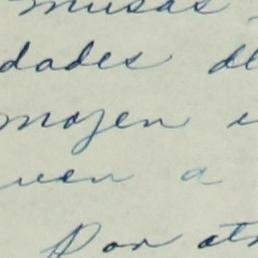 musas
dades de
mojen
ven a
Por otr